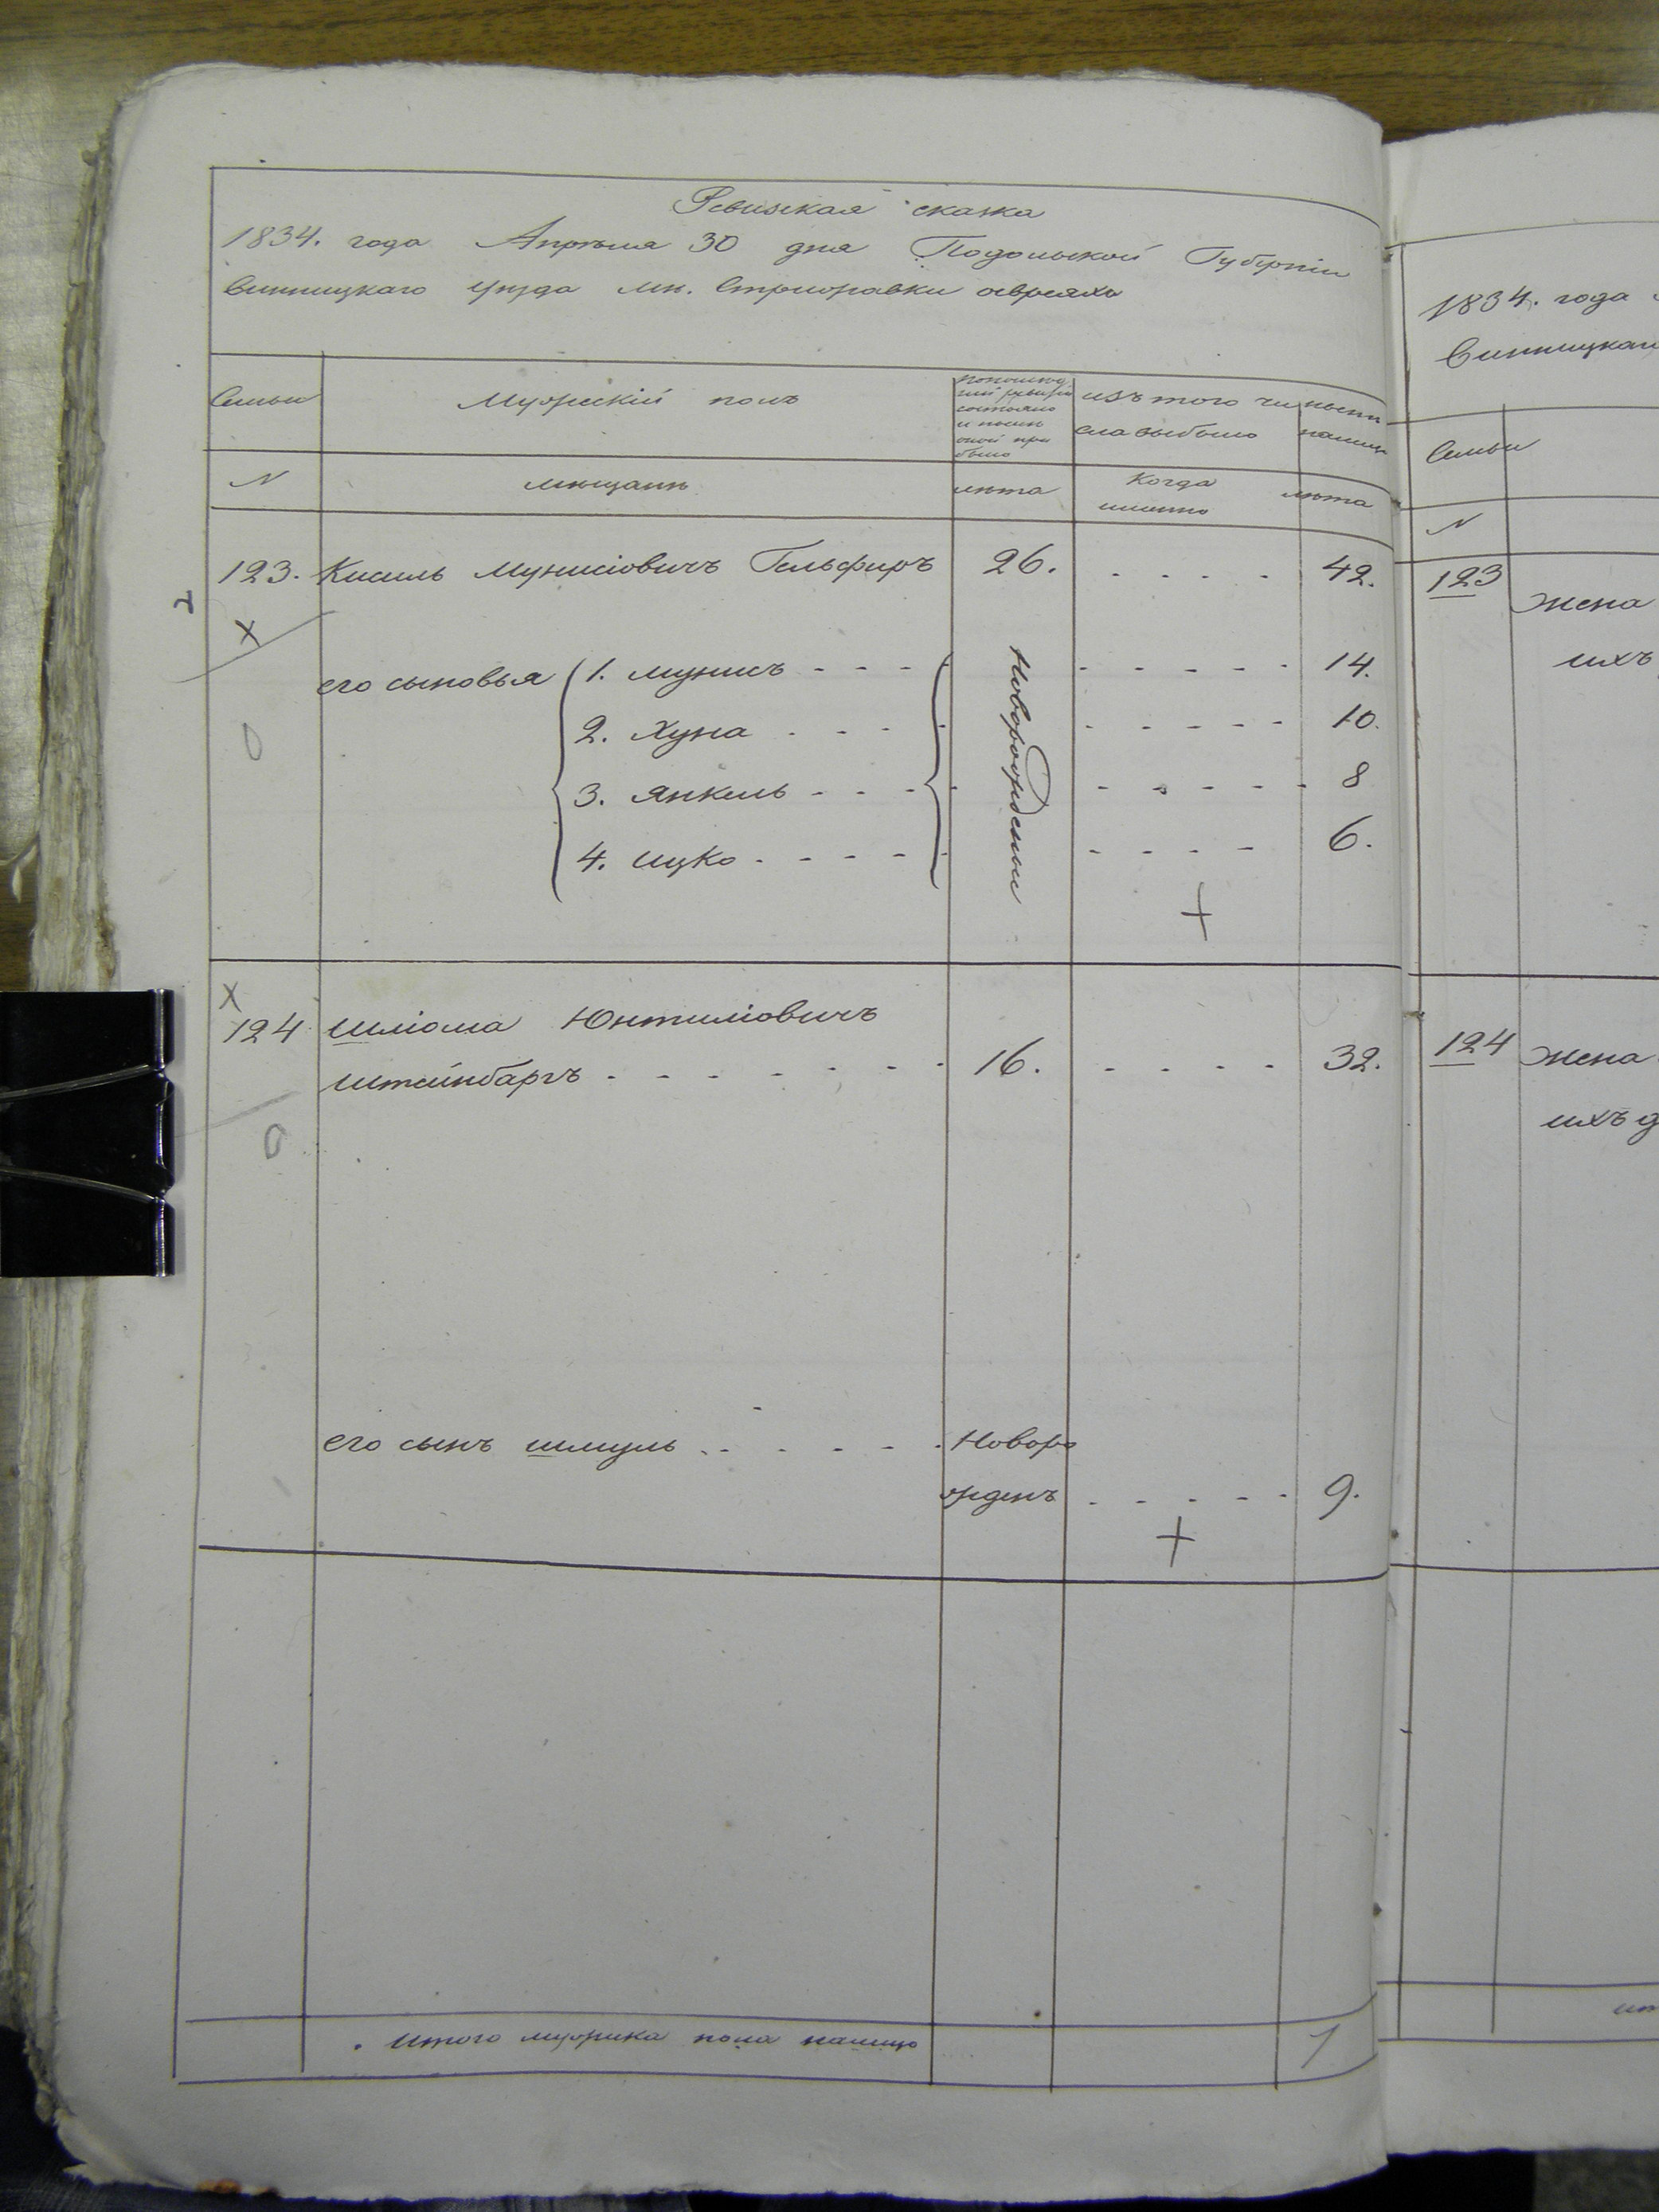 Ревизская сказка
1834. года Апреля 30 дня Подольской Губерніи
Винницкаго уезда мѣ. Стрижавки оевреяхъ
Семьи
Мужескій полъ
изъ того чи
сла выбыло
нынѣ
налицо
N
мещанѣ
лѣта
Когда
именно
лѣта
123. Кисиль Мунисіовичъ Гельфиръ 26. - - - - 42.
X
его сыновья 1. Мунисъ - - - - - - - - 14.
2. Хуна - - - - - - - - 10.
3. Янкель - - - - - - - - 8
4. Ицко - - - - - - - - 6.
Новорожденыи
+
X
124 Шліома Юнтиліовичъ
Штейнбаргъ - - - - - - - 16. - - - - 32.
его сынъ Шмуль - - - - - Новоро
жденъ - - - - - 9.
+
Итого мужеска пола налицо 7
1834. года
Винницкаго
Семьи
N
123 Жена
ихъ
124 Жена
ихъ д